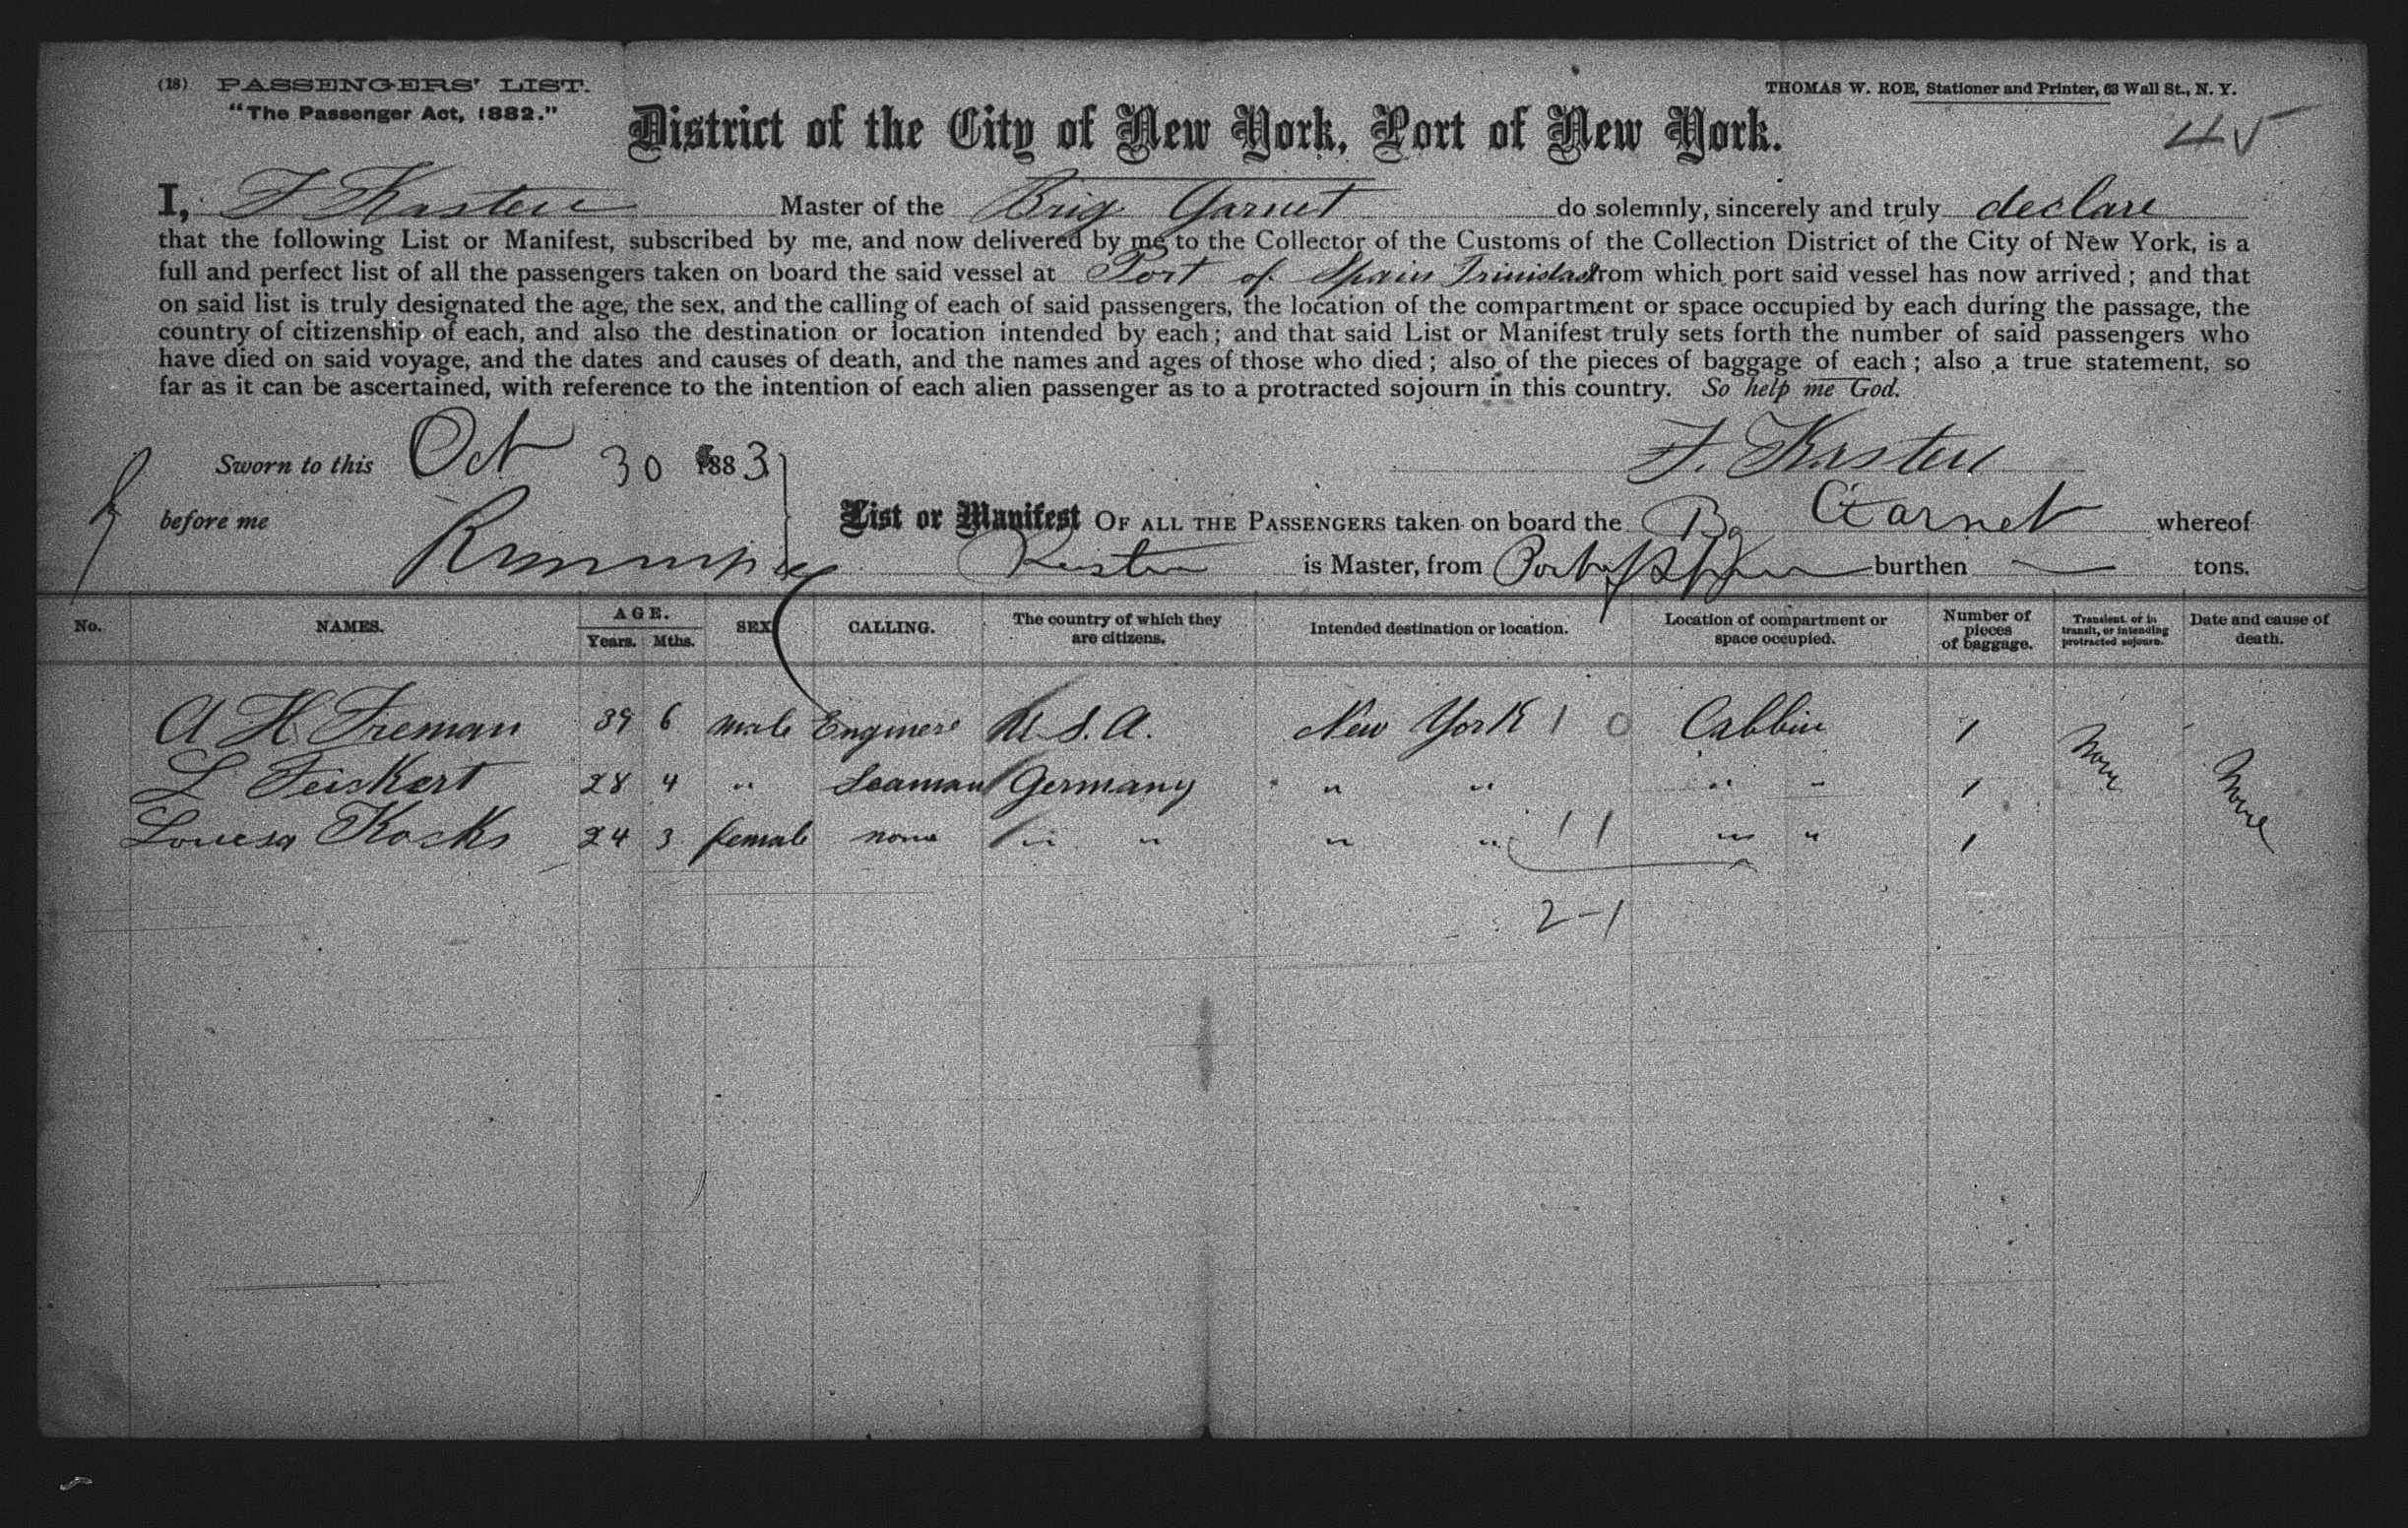 (18) PASSENGERS' LIST.
"The Passenger Act, 1882."
THOMAS W. ROE, Stationer and Printer, 63 Wall St., N. Y.
District of the City of New York, Port of New York.
45
I, F Kasten Master of the Brig Garnet do solemnly, sincerely and truly declare
that the following List or Manifest, subscribed by me, and now delivered by me to the Collector of the Customs of the Collection District of the City of New York, is a
full and perfect list of all the passengers taken on board the said vessel at Port of Spain Trinidad from which port said vessel has now arrived; and that
on said list is truly designated the age, the sex, and the calling of each of said passengers, the location of the compartment or space occupied by each during the passage, the
country of citizenship of each, and also the destination or location intended by each; and that said List or Manifest truly sets forth the number of said passengers who
have died on said voyage, and the dates and causes of death, and the names and ages of those who died; also of the pieces of baggage of each; also a true statement, so
far as it can be ascertained, with reference to the intention of each alien passenger as to a protracted sojourn in this country. So help me God.
Sworn to this Oct 30 1883
F. Kasten
before me
List or Manifest OF ALL THE PASSENGERS taken on board the Bg Garnet whereof
Kasten is Master, from Port of Spain burthen — tons.
No. NAMES. AGE. Years. Mths. SEX CALLING. The country of which they are citizens. Intended destination or location. Location of compartment or space occupied. Number of pieces of baggage. Transient or in transit, or intending protracted sojourn. Date and cause of death.
A H. Freman 39 6 male Engineer U.S.A. New York 1 0 Cabbin 1 None None
L Feickert 28 4 " Seaman Germany " " " " 1
Louesa Kocks 24 3 female none " " " " 1 1 " " 1
2-1